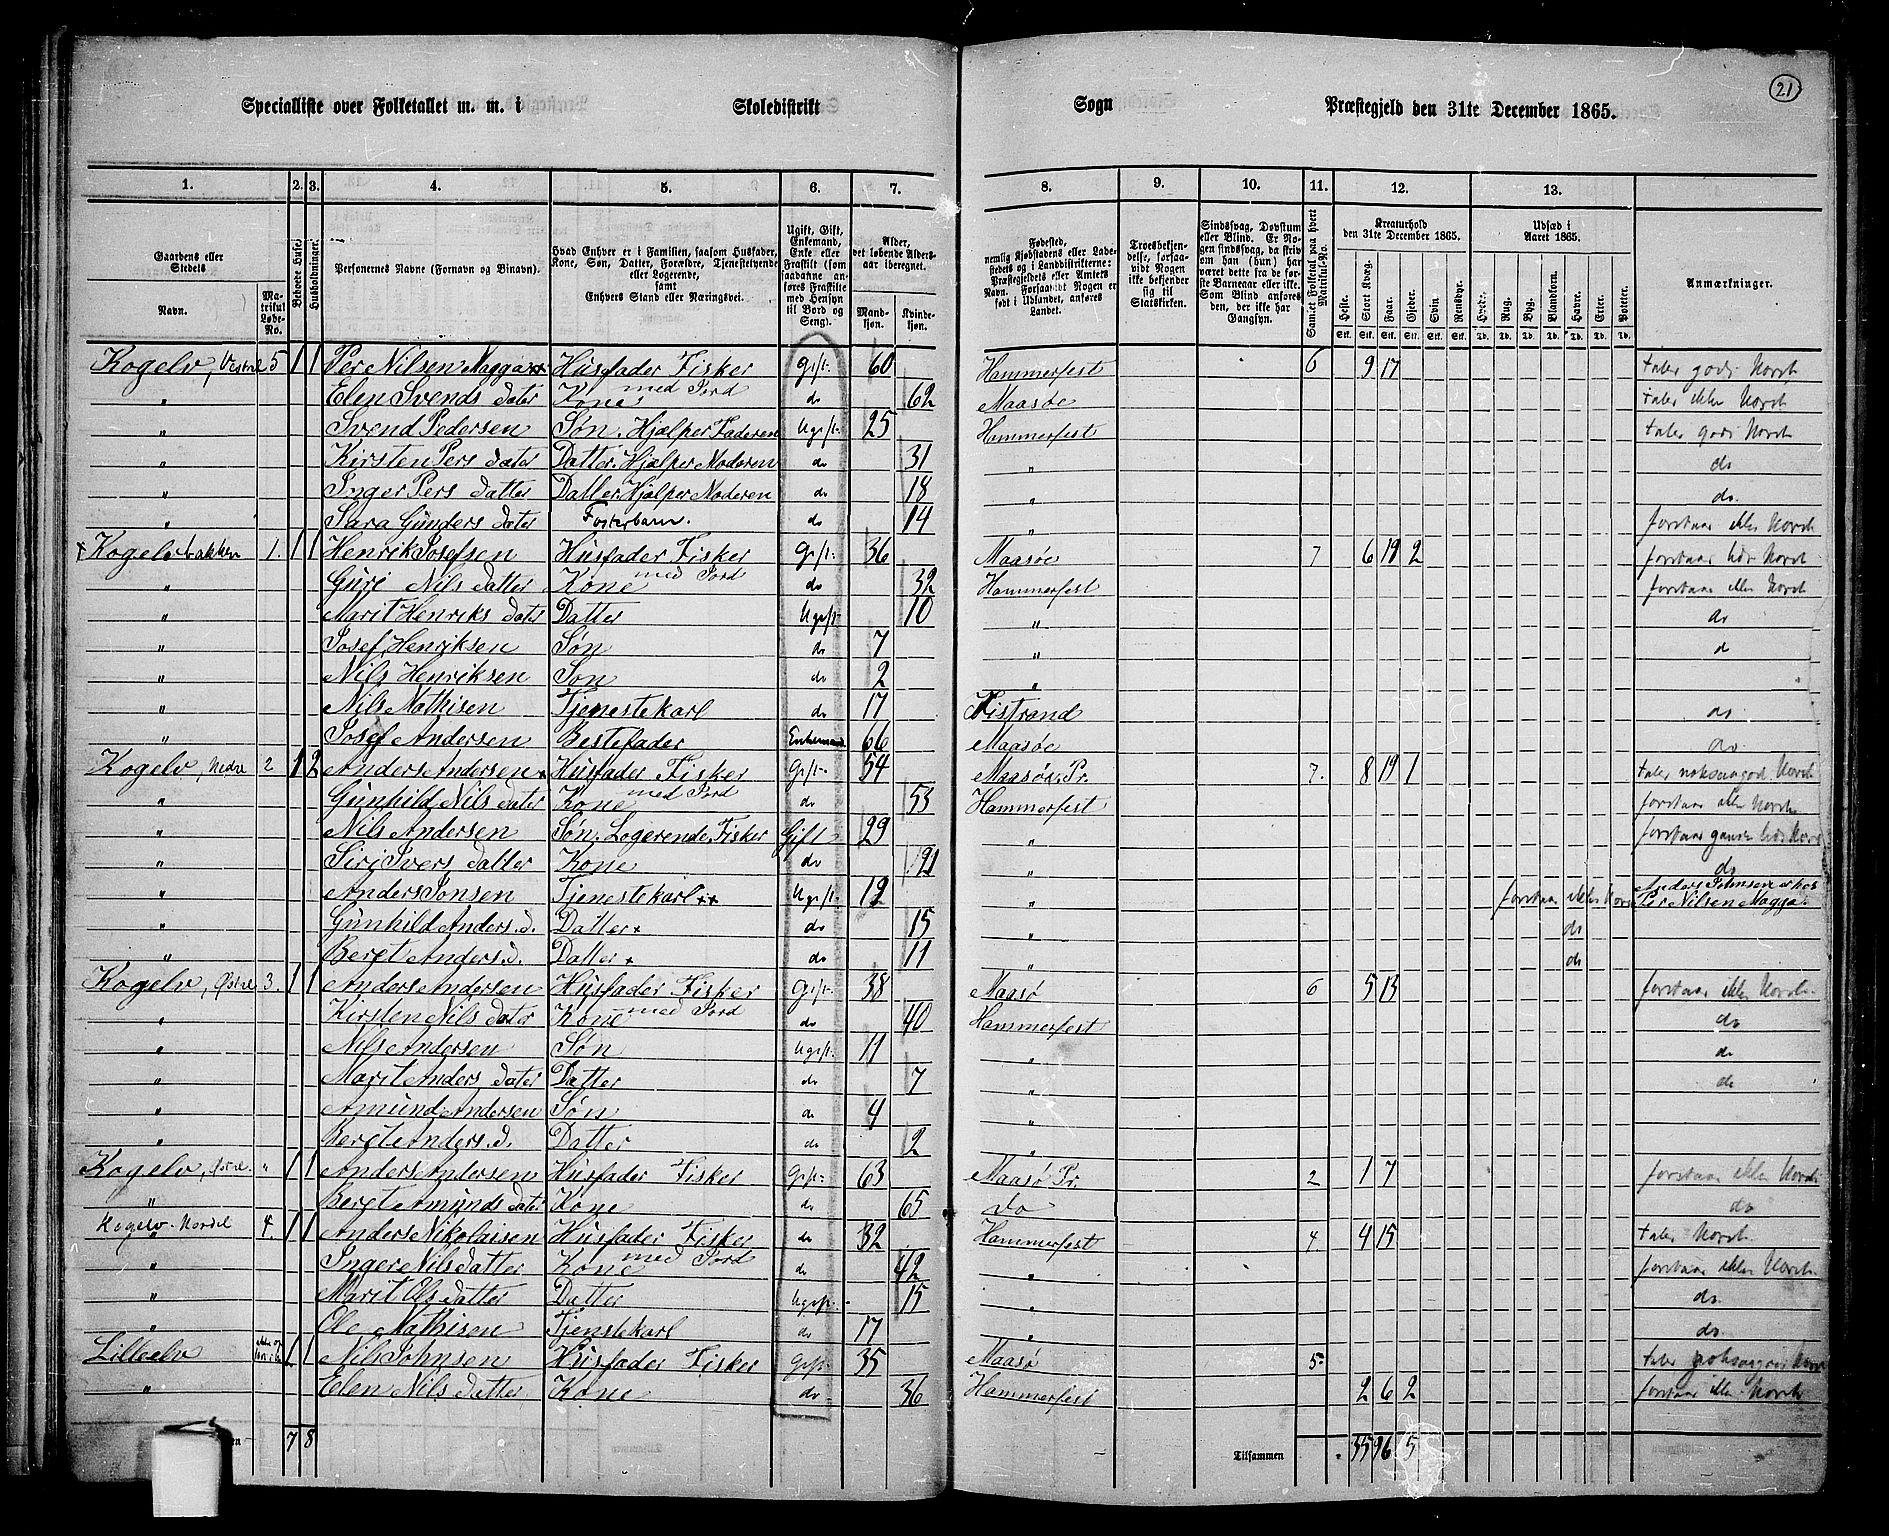 21
Specialliste over Folketallet m. m. i Skoledistrikt Sogn Præstegjeld den 31te December 1865.
1. 2. 3. 4. 5. 6. 7. 8. 9. 10. 11. 12. 13.
Gaardens eller Stedets
Navn.
Matrikul Løbe-No.
Beboede Huse.
Husholdninger.
Personernes Navne (Fornavn og Binavn).
Hvad Enhver er i Familien, saasom Husfader, Kone, Søn, Datter, Forældre, Tjenestetyende eller Logerende, samt Enhvers Stand eller Næringsvei.
Ugift, Gift, Enkemand, Enke eller Fraskilt (som saadanne anføres Fraskilte med Hensyn til Bord og Seng).
Alder, det løbende Alders-aar iberegnet.
Mand-kjøn. Kvinde-kjøn.
Fødested, nemlig Kjøbstadens eller Ladestedets og i Landdistrikterne: Præstegjeldets eller Amtets Navn. Forsaavidt Nogen er født i Udlandet, anføres Landet.
Troesbekjendelse, forsaavidt Nogen ikke bekjender sig til Statskirken.
Sindssvag, Døvstum eller Blind. Er Nogen sindssvag, da skrives om han (hun) har været dette fra de første Barneaar eller ikke. Som Blind anføres den, der ikke har Gangsyn.
Samlet Folketal paa hvert Matrikul-No.
Kreaturhold den 31te December 1865.
Heste. Stort Kvæg. Faar. Gjeder. Svin. Rensdyr.
Udsæd i Aaret 1865.
Hvede. Rug. Byg. Blandkorn. Havre. Erter. Poteter.
Anmærkninger.
Kogelv, Vestre 5 1 1 Per Nilsen Magga Husfader Fisker Gift 60 Hammerfest 6 9 17 taler godt Norsk
" Elen Svends dater Kone med Jord do 62 Maasøe taler ikke Norsk
" Svend Pedersen Søn. Hjælper Faderen Ugift 25 Hammerfest taler godt Norsk
" Kirsten Pers dater Datter. Hjælper Moderen do 31 " do
" Inger Pers datter Datter. Hjælper Moderen do 18 " do.
" Sara Gunders dater Fosterbarn. do 14 " forstaar ikke Norsk
Kogelvbakken 1. 1 1 Henrik Josefsen Husfader Fisker Gift 36 Maasøe 7 6 19 2 forstaar lidt Norsk
" Guri Nils datter Kone med Jord do 32 Hammerfest forstaar ikke Norsk
" Marit Henriks dater Datter Ugift 10 " do
" Josef Henriksen Søn do 7 " d
" Nils Henriksen Søn do 2 "
" Nils Mathisen Tjenestekarl do 17 Kistrand do
" Josef Andersen Bestefader Enkemand 66 Maasøe do
Kogelv, Nedre 2 1 2 Anders Andersen Husfader Fisker Gift 54 Maasøe Pr. 7. 8 19 1 taler noksaa god Norsk
" Gunhild Nils dater Kone med Jord do 53 Hammerfest forstaar ikke Norsk
" Nils Andersen Søn. Logerende. Fisker Gift 29 " forstaar ganske lidt Norsk
" Siri Ivers datter Kone do 21 " do
" Anders Jonsen Tjenestekarl ++ Ugift 12 " forstaar ikke Norsk Anders Johnsen er hos Per Nilsen Magga.
" Gunhild Anders. d. Datter + do 15 " do
" Beret Anders. d. Datter + do 11 " do
Kogelv, Østre 3. 1 1 Anders Andersen Husfader Fisker Gift 38 Maasø 6 5 13 forstaar ikke Norsk
" Kirsten Nils dater Kone med Jord do 40 Hammerfest do
" Nils Andersen Søn Ugift 11 " do
" Marit Anders dater Datter do 7 " do
" Amund Andersen Søn do 4 "
" Beret Anders. d. Datter do 2 "
Kogelv, Østre. " 1 1 Anders Andersen Husfader Fisker Gift 63 Maasø Pr. 2 1 7 forstaar ikke Norsk
" Beret Amunds dater Kone do 65 do do
Kogelv. Nordel 4. 1 1 Anders Nikolaisen Husfader Fisker do 32 Hammerfest 4. 4 15 taler Norsk
" Inger Nils datter Kone med Jord do 42 " forstaar ikke Norsk
" Marit Ols datter Datter Ugift 15 " do
" Ole Mathisen Tjenstekarl do 17 " do
Lilleelv 1 1 Nils Johnsen Husfader Fisker Gift 35 Maasø 5 taler noksaa god Norsk
" Elen Nils datter Kone do 36 Hammerfest 2 6 2 forstaar ikke Norsk
7 8 Tilsammen 35 96 5